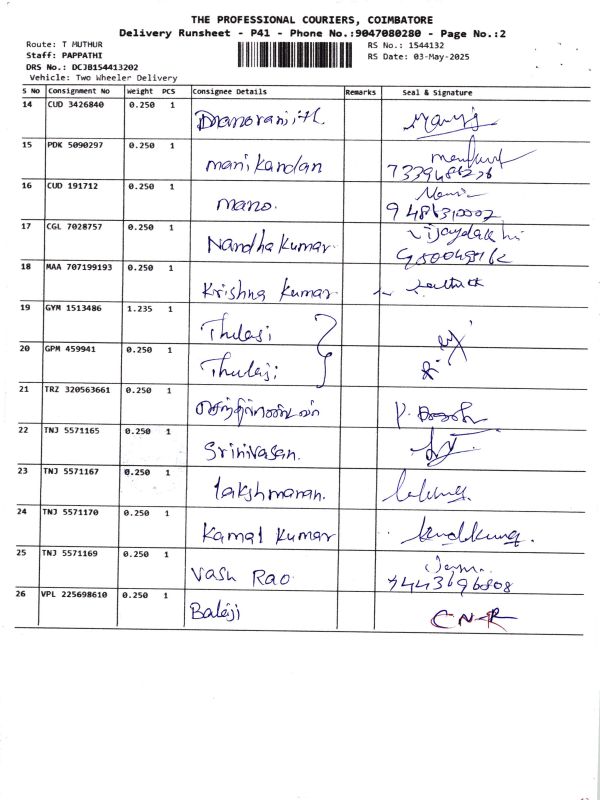 THE PROFESSIONAL COURIERS, COIMBATORE
Delivery Runsheet - P41 - Phone No.:9047080280 - Page No.:2
Route: T MUTHUR RS No.: 1544132
Staff: PAPPATHI RS Date: 03-May-2025
DRS No.: DCJB154413202
Vehicle: Two Wheeler Delivery
S No Consignment No Weight PCS Consignee Details Remarks Seal & Signature
14 CUD 3426840 0.250 1 Manoranjith
15 PDK 5090297 0.250 1 manikandan
16 CUD 191712 0.250 1 mano.
17 CGL 7028757 0.250 1 Nandha Kumar
18 MAA 707199193 0.250 1 Krishna Kumar
19 GYM 1513486 1.235 1 Thulasi
20 GPM 459941 0.250 1 Thulasi
21 TRZ 320563661 0.250 1
22 TNJ 5571165 0.250 1 Srinivasan.
23 TNJ 5571167 0.250 1 lakshmanan.
24 TNJ 5571170 0.250 1 Kamal Kumar
25 TNJ 5571169 0.250 1 Vasu Rao
26 VPL 225698610 0.250 1 Balaji CNR